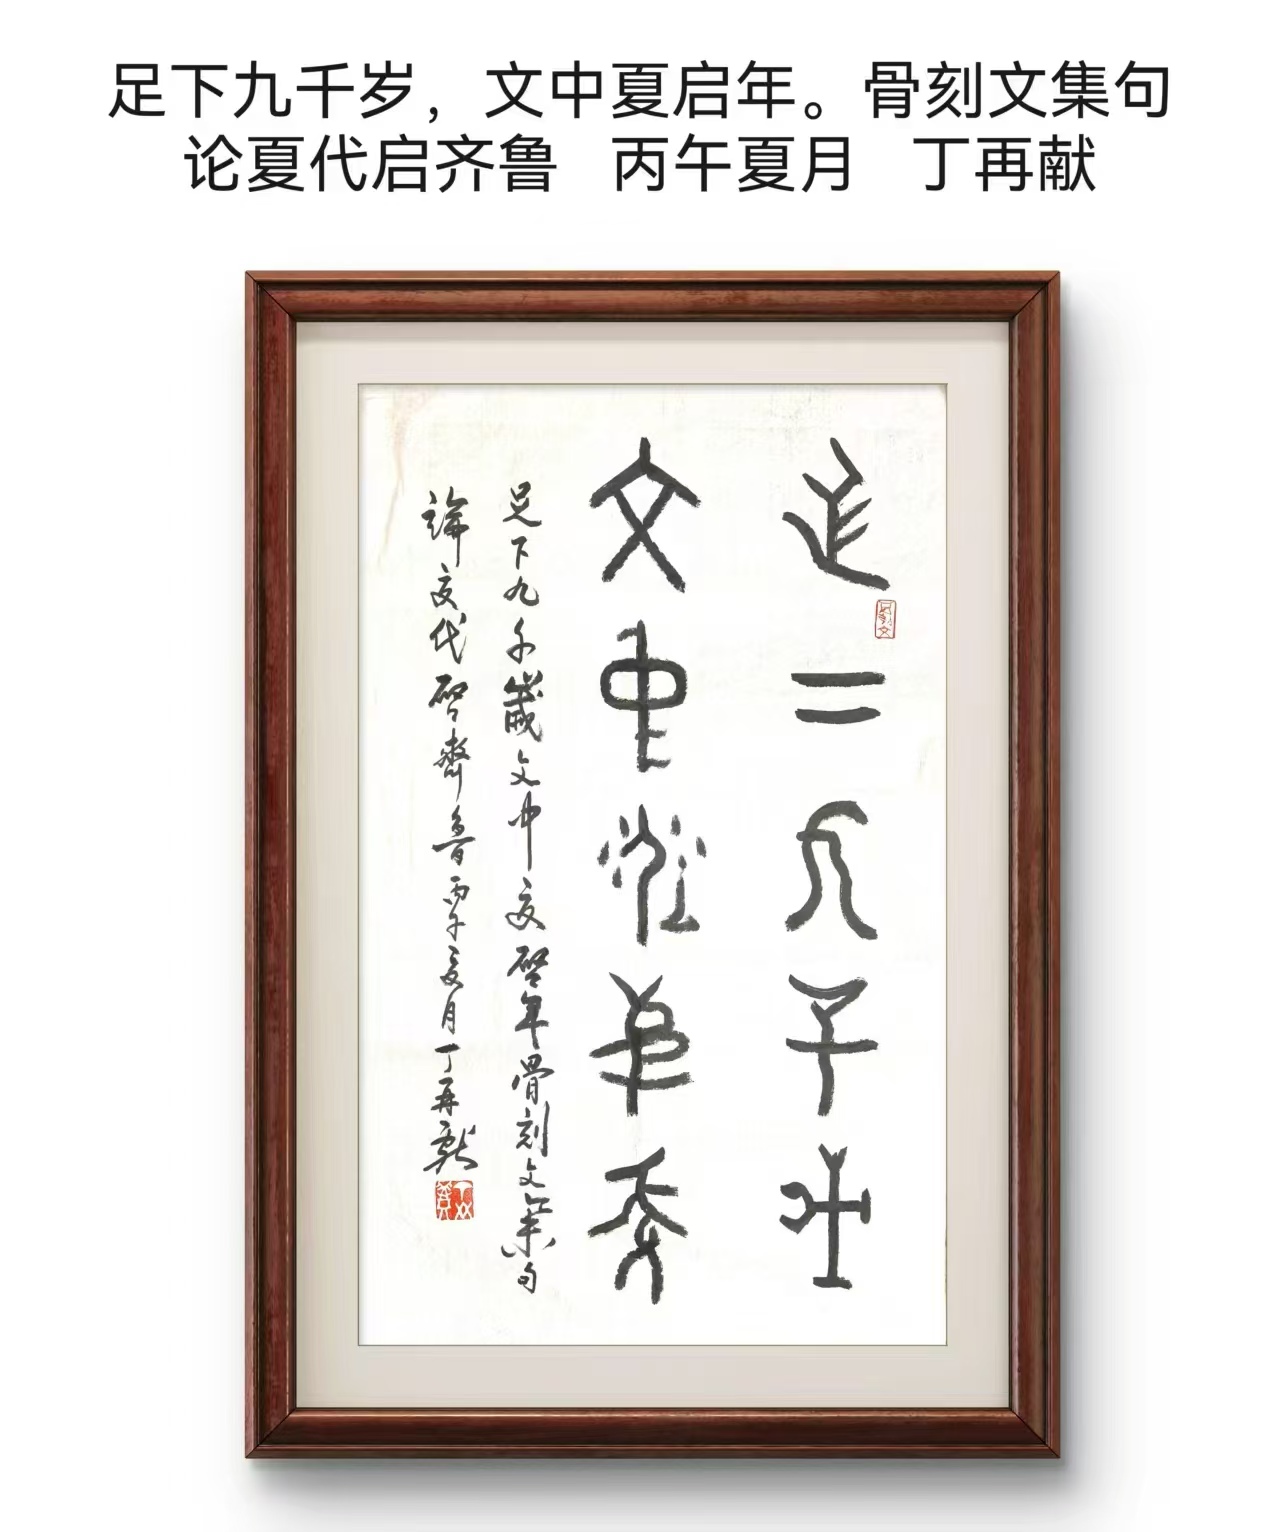 足下九千岁，文中夏启年。骨刻文集句
论夏代启齐鲁 丙午夏月 丁再献
足下九千歲
文中夏啓年
足下九千歲文中夏啓年骨刻文集句
論夏代啓齊魯丙午夏月丁再献